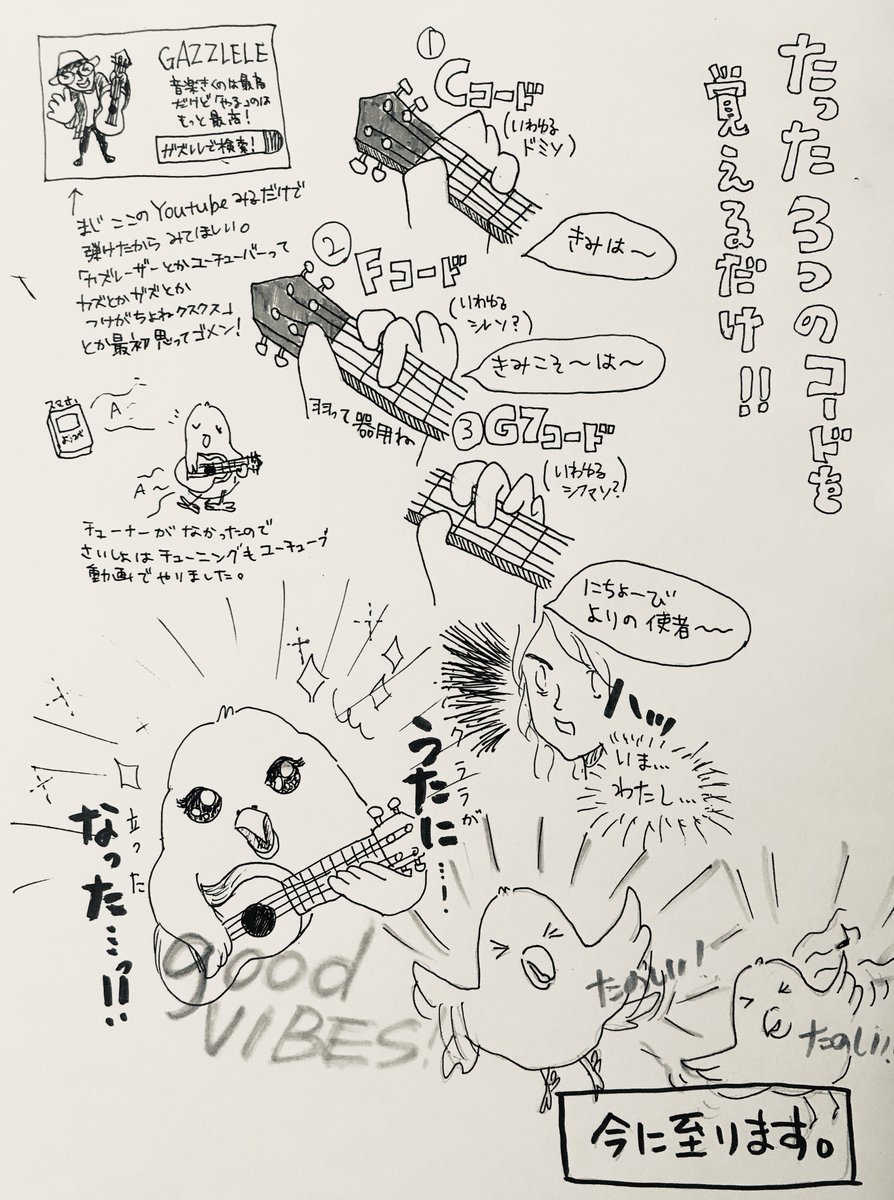 たった3つのコードを
覚えるだけ!!
① Cコード
(いわゆる
ドミソ)
きみは〜
② Fコード
(いわゆる
シレソ?)
きみこそ〜は〜
羽って
器用ね
③ G7コード
(いわゆる
シファソ?)
にちょーび
よりの使者〜〜
GAZZLELE
音楽きくのは最高
だけど「やる」のは
もっと最高!
ガズレレで検索!
↑
まじ ここの Youtube みるだけで
弾けたから みてほしい。
「カズレーザーとかユーチューバーって
カズとかガズとか
つけがちよねクスクス」
とか最初思ってゴメン!
スマホ
A〜
A〜
チューナーがなかったので
さいしょはチューニングもユーチューブ
動画でやりました。
ハッ
いま…
わたし…
クララが
うたに…!
立った
なった…っ!!
good
VIBES!
たのしい!
たのしい!!
今に至ります。